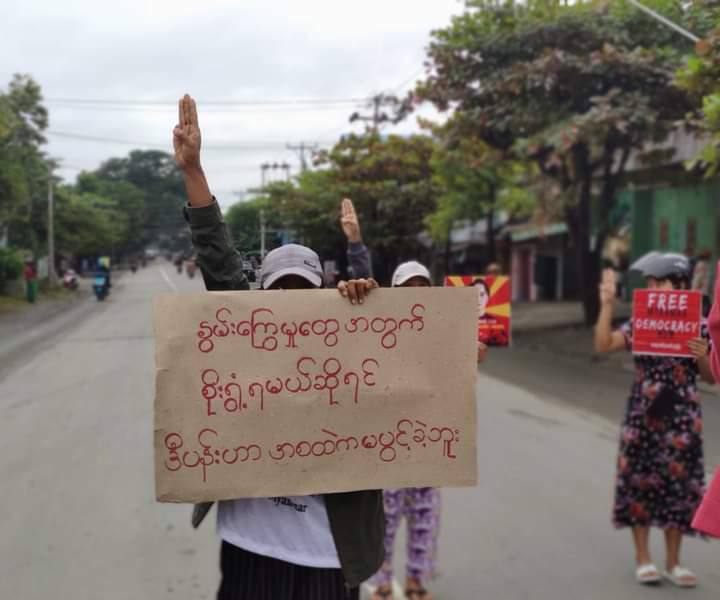 နွမ်းကြွေမှုတွေ အတွက်
စိုးရွံ့ရမယ်ဆိုရင်
ဒီပန်းဟာ အစထဲကမပွင့်ခဲ့ဘူး
FREE
DEMOCRACY